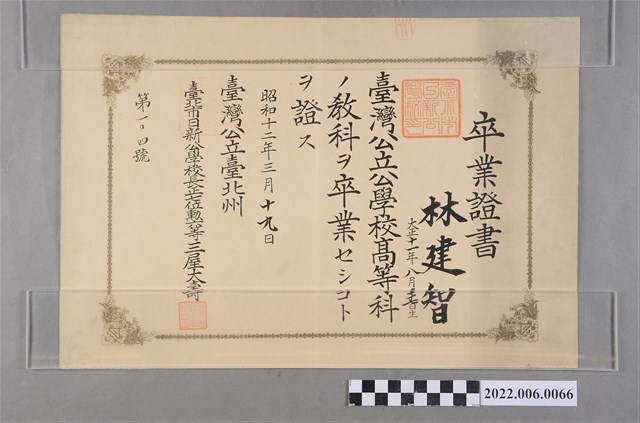 卒業證書
林建智
大正十一年八月 日生
臺灣公立公學校高等科
ノ教科ヲ卒業セシコト
ヲ證ス
昭和十二年三月十九日
臺灣公立臺北州
臺北市日新公學校長正七位勳八等三屋大壽
第一〇四號
2022.006.0066